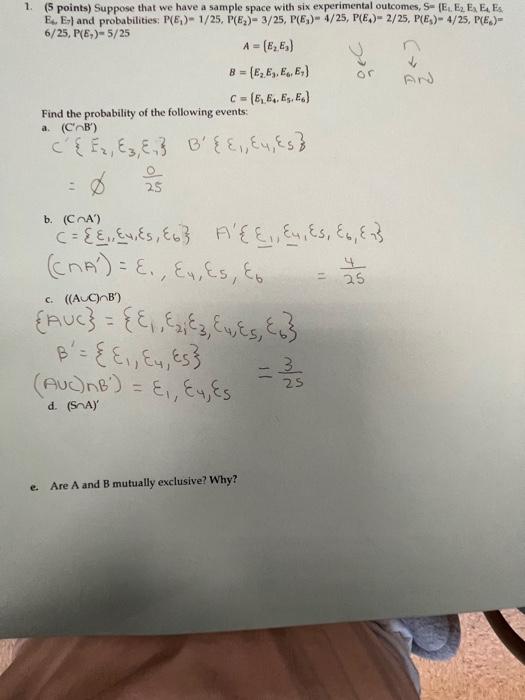 1. (5 points) Suppose that we have a sample space with six experimental outcomes, S= {E₁, E₂, E₃, E₄, E₅,
E₆, E₇} and probabilities: P(E₁)= 1/25, P(E₂)= 3/25, P(E₃)= 4/25, P(E₄)= 2/25, P(E₅)= 4/25, P(E₆)=
6/25, P(E₇)=5/25
A = {E₂,E₃}
∪ ∩
B = {E₂,E₃, E₆, E₇}
or And
C = {E₁,E₄, E₅, E₆}
Find the probability of the following events:
a. (C'∩B')
C' { E₂, E₃, E₇} B' { E₁, E₄, E₅ }
= ∅ 0/25
b. (C∩A')
C = { E₁, E₄, E₅, E₆ } A' { E₁, E₄, E₅, E₆, E₇}
(C∩A') = E₁, E₄, E₅, E₆ = 4/25
c. ((A∪C)∩B')
{A∪C} = { E₁, E₂, E₃, E₄, E₅, E₆ }
B' = { E₁, E₄, E₅}
(A∪C)∩B') = E₁, E₄, E₅ = 3/25
d. (S∩A)'
e. Are A and B mutually exclusive? Why?